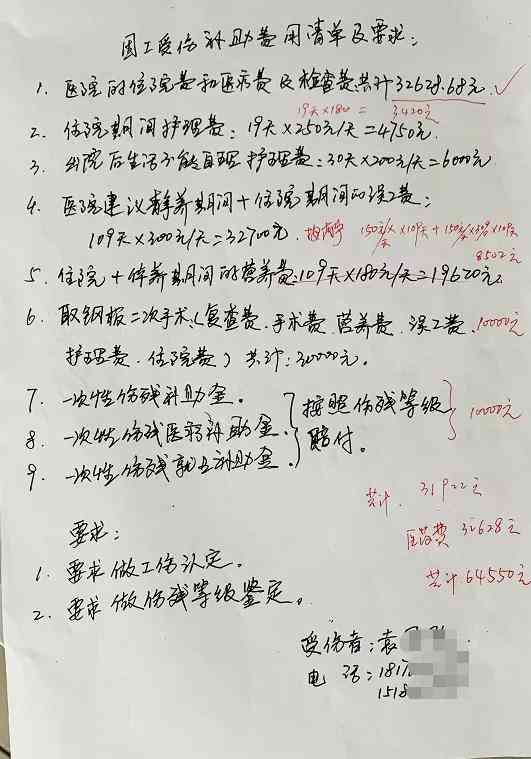 因工受伤补助费用清单及要求:
1. 医院的住院费和医疗费及检查费共计32628.68元. ✓
19天×180 = 3420元
2. 住院期间护理费: 19天×250元/天=4750元.
3. 出院后生活不能自理护理费: 30天×200元/天=6000元
4. 医院建议静养期间+住院期间的误工费:
109天×300元/天=32700元.
150元/天×109天+150元/天×
8502元
5. 住院+休养期间的营养费: 109天×180元/天=19620元.
6. 取钢板二次手术(复查费.手术费.营养费.误工费. 10000元
护理费.住院费)共计:30000元.
7. 一次性伤残补助金.
8. 一次性伤残医疗补助金. 按照伤残等级赔付. 10000元
9. 一次性伤残就业补助金.
共计. 31922元
要求:
医药费 32628元
1. 要求做工伤认定.
共计64550元
2. 要求做伤残等级鉴定.
受伤者:袁
电话:1817
1518